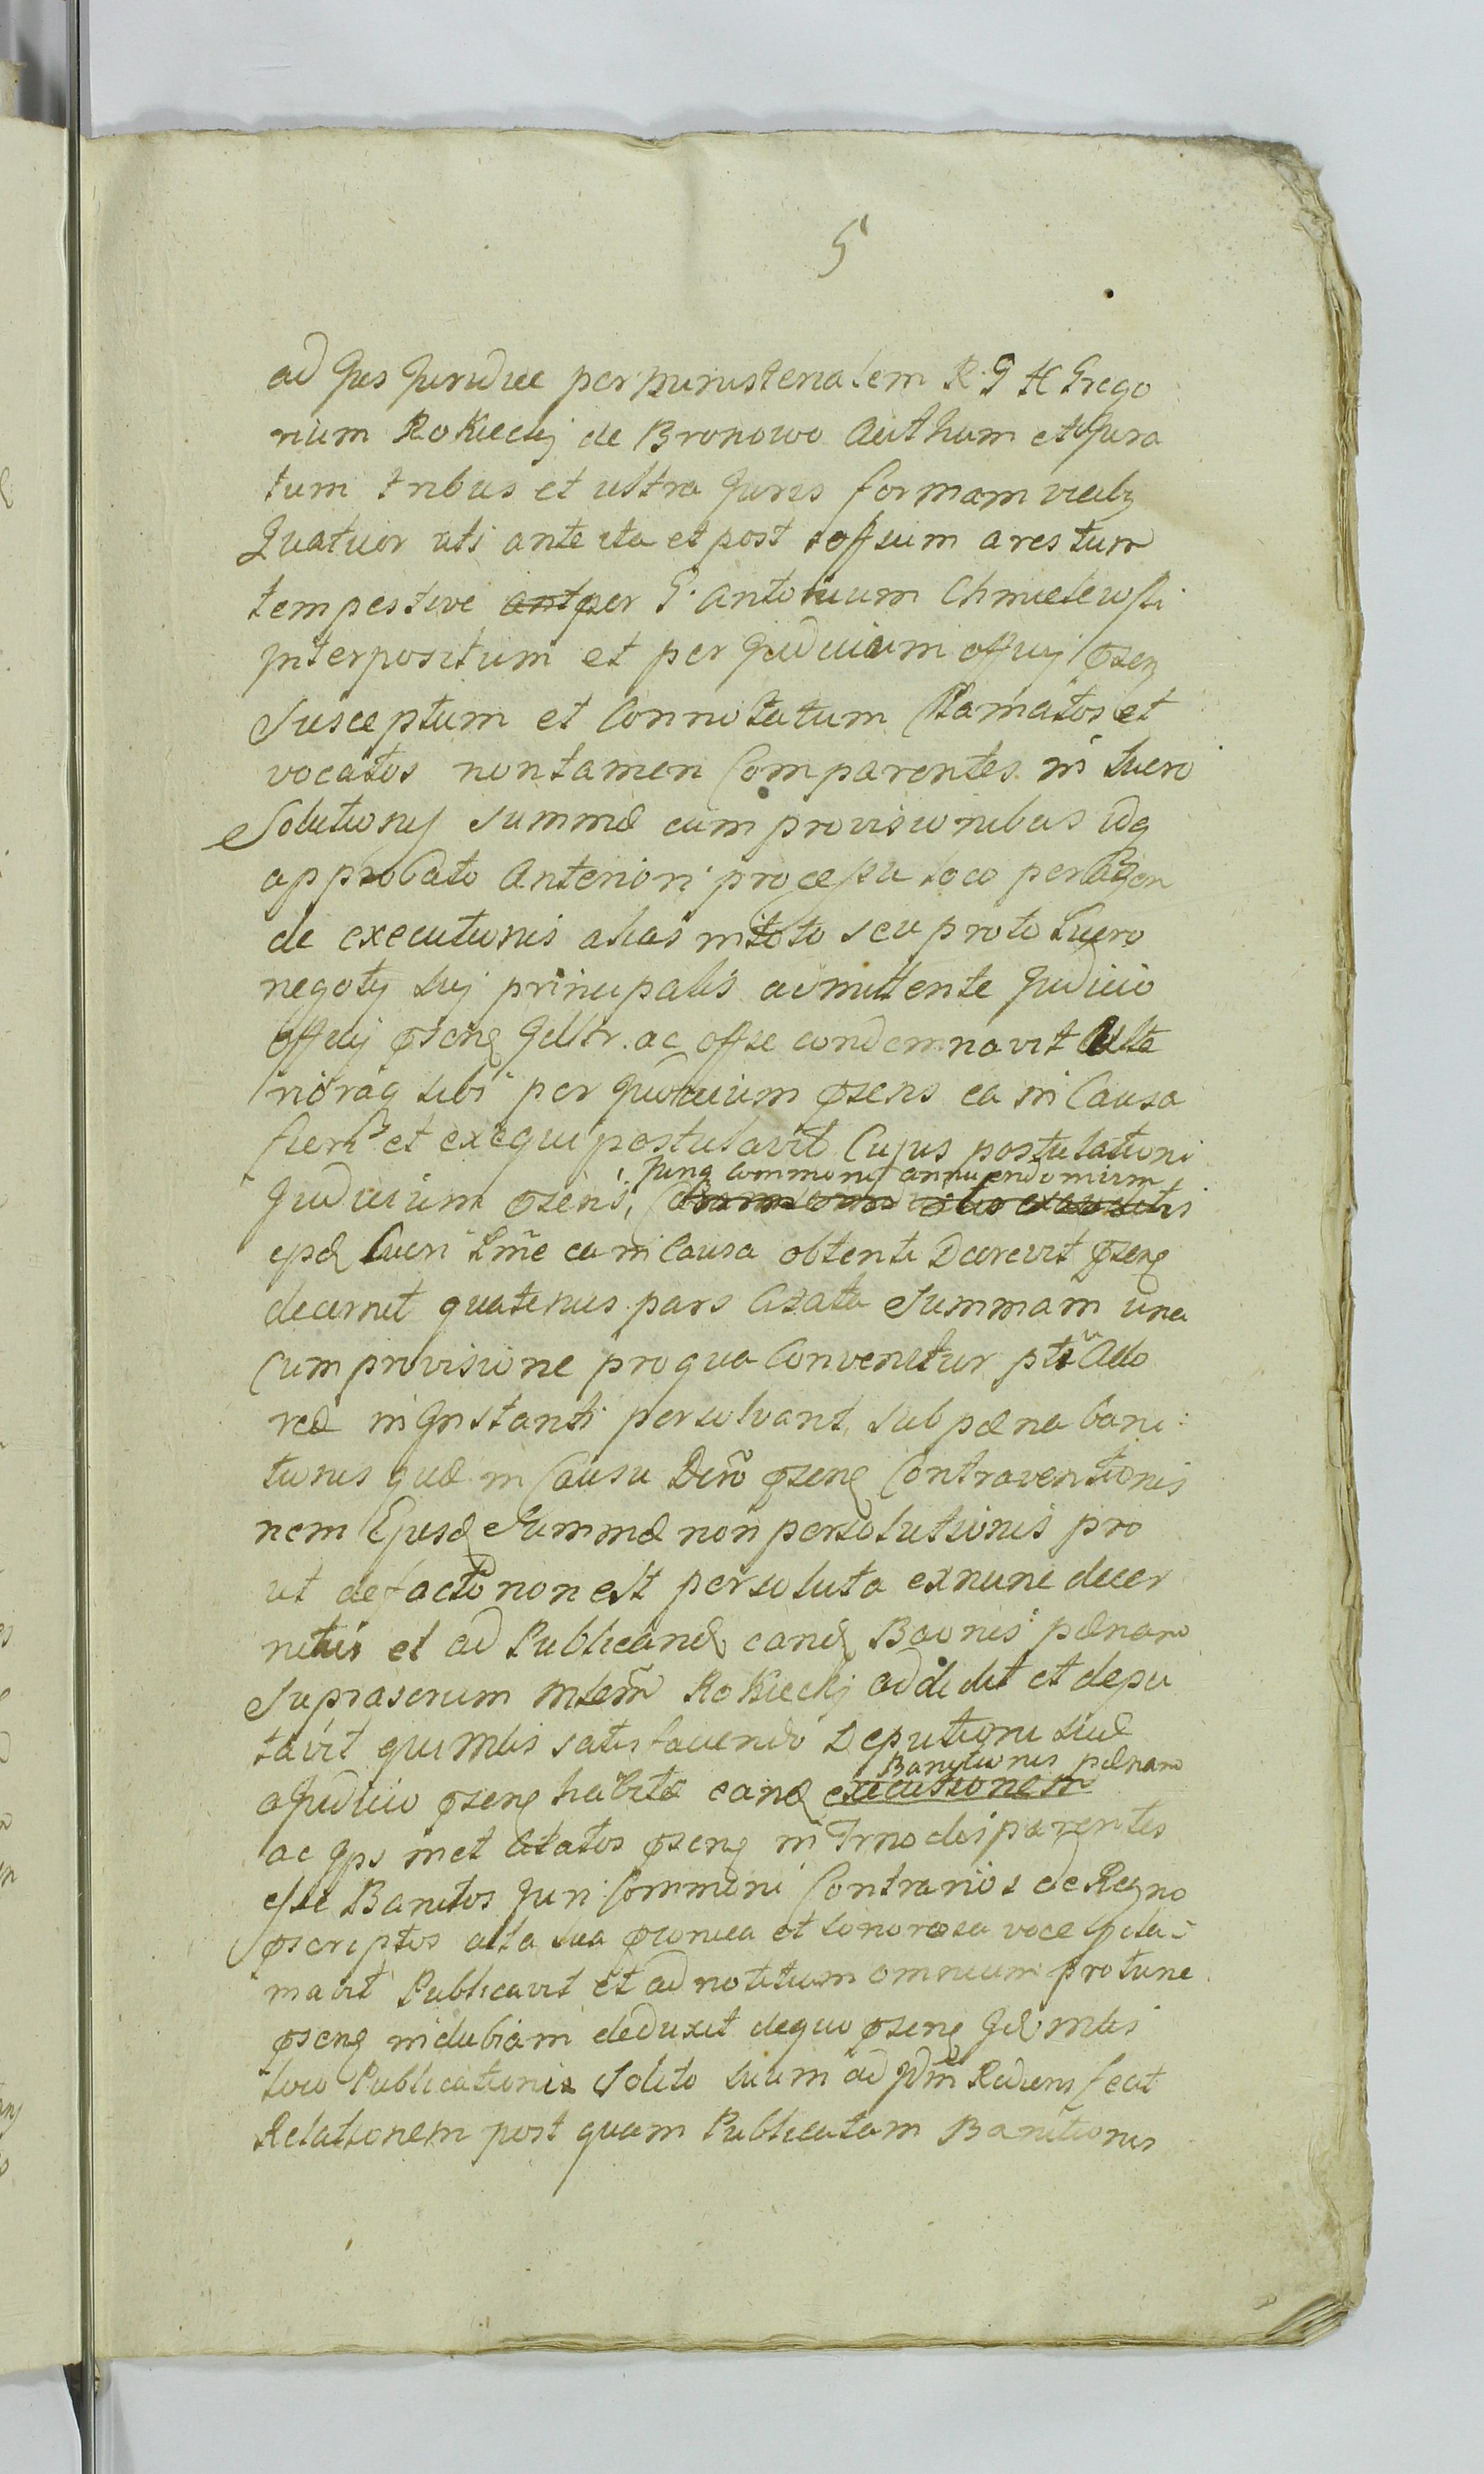 5
ad Jus Juridice per ministerialem R. G H Grego
rium Rokicckj de Bronowo Authum et Jura
tum tribus et ultra Juris formam vicibꝫ
Quatuor uti ante ita et post offium arestum
tempestive ant per G. Antonium Chmielewski
Interpositum et per Judicium officij pñsen
Susceptum et Connotatum Clamatos et
vocatos non tamen Comparentes in lucro
Solutionis Summæ cum provisionibus idq
approbato Anteriori processu loco peragen
de executionis alias in toto seu pro to Lucro
negotij sui principalis admittente Judicio
officij pñsenq ac offse condemnavit Ulte
rioraq sibi per Judicium pñsens ea in Causa
fieri et exequi postulavit Cujus postulationi
Judicium pñsens, Juriq Communi annuendo
ejusd Lucri ea in Causa obtenti Decrevit pñsenq
decernit quatenus pars Citata Summam una
Cum provisione pro qua Convenitur Acto
reæ in Instanti persolvant sub pæna bani:
tionis quæ in Causa Decreto pñsenq Contraventionis
nem Ejusd Summæ non persolutionis pro
ut de facto non est persoluta ex nunc decer
nitur et ad Publicand eand Baonis pænam
Suprascrium Rokieckj addidit et depu
tavit qui Mlis satisfaciendo Deputioni suæ
Banitionis pænam
a Judicio pñsenq habitæ eand executionem
ac Ips met Citatos pñsenq in Trno comparentes
esse Banitos Juri Communi Contrarios de Regno
pscriptos alta sua et sonorosa voce
mavit Publicavit et ad notitiam omnium pro tunc
pñsenq indubiam deduxit de quo pñsenq Id Mlis
loco Publicationis Solito suum ad Rediens fecit
Relationem post quam Publicatam Banitionis